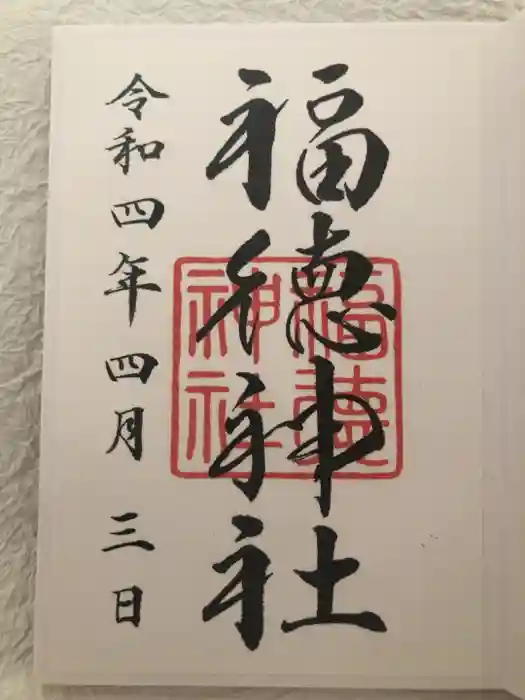 福德神社
福德神社
令和四年四月三日